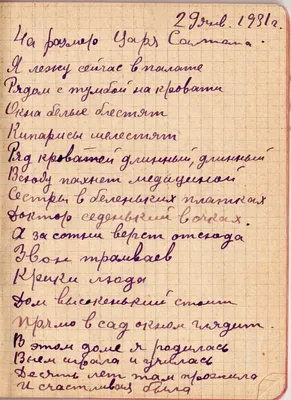 29 янв. 1931 г.
На размер Царя Салтана.
Я лежу сейчас в палате
Рядом с тумбой на кровати
Окна белые блестят
Кипарисы шелестят
Ряд кроватей длинный, длинный
Всюду пахнет медициной
Сестры в беленьких платках
Доктор седенький в очках.
А за сотни верст отсюда
Звон трамваев
Крики люда
Дом высокенький стоит
Прямо в сад окном глядит.
В этом доме я родилась
В нем играла и училась
Десять лет там прожила
И счастливая была